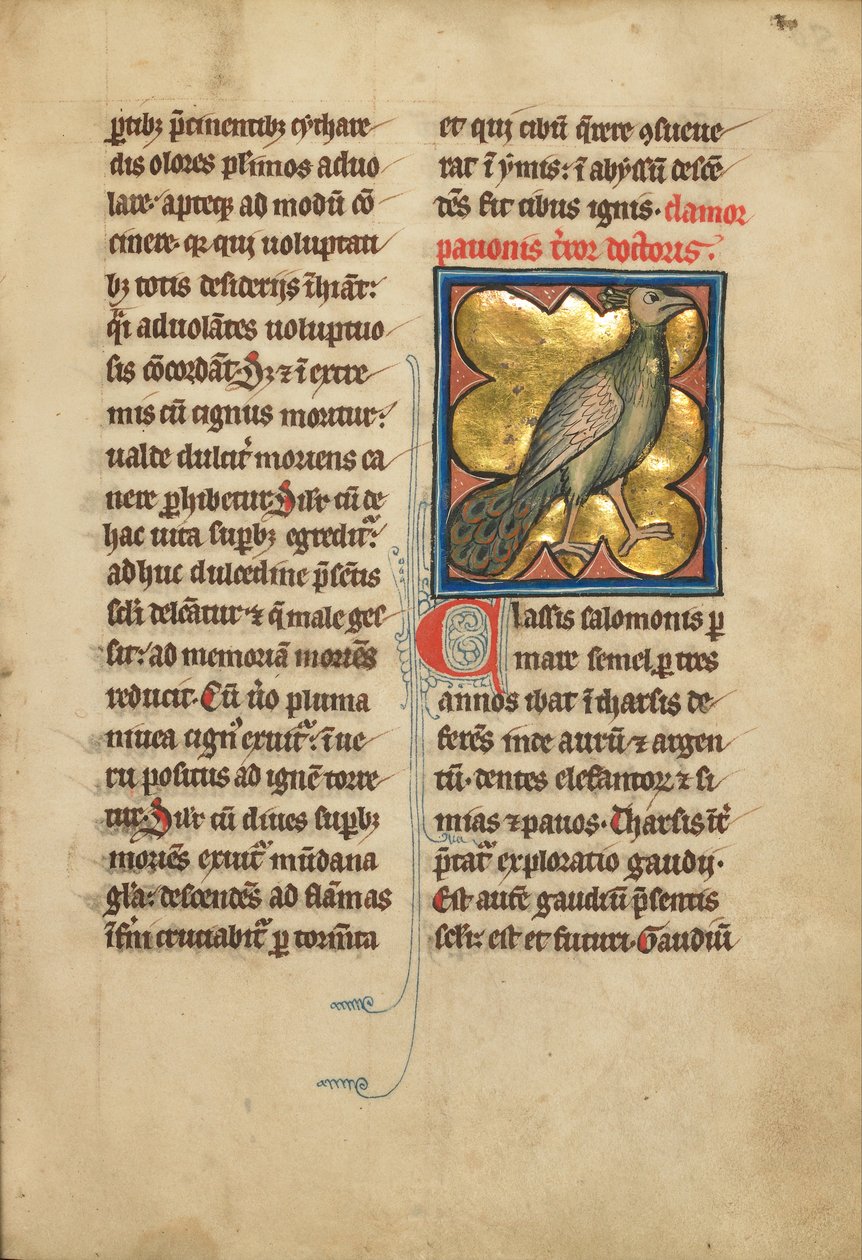 ꝑtibꝫ p̄cinentibꝫ cythare
dis olores pl̃imos aduo
lare· apteqꝫ ad modū cō
cinere· qꝛ qui uoluptati
bꝫ totis desiderijs īhiāt:
q̃i aduolātes uoluptuo
sis cōcordāt· Sꝫ ⁊ ī extre
mis cū cignus moritur:
ualde dulcit̾ moriens ca
nere ꝑhibetur· Sil'r cū de
hac uita suꝑbꝫ egredit᷑:
adhuc dulcedine p̄sētis
scl'i delcātur ⁊ q̄ male ges
sit: ad memoriā moriēs
reducit· Cū u̾o pluma
niuea cign᷒ exuit᷑: ī ue
ru positus ad ignē torre
tur· Sil'r cū diues suꝑbꝫ
moriēs exuit᷑ mūdana
gl'a: descendēs ad flāmas
īfr̄i cruciabit᷑ ꝑ torm̄ta
et qui cibū q̄rere ꝯsueue
rat ī ymis: ī abyssū descē
dēs fit cibus ignis· clamor
pauonis t̾ror doctoris·
Classis salomonis ꝑ
mare semel ꝑ tres
annos ibat ī tharsis de
ferēs inde aurū ⁊ argen
tū· dentes elefantoꝝ ⁊ si
mias ⁊ pauos· Tharsis īt̾
p̄tat᷑ exploratio gaudij·
Est autē gaudiū p̄sentis
scl'i: est et futuri· Gaudiū